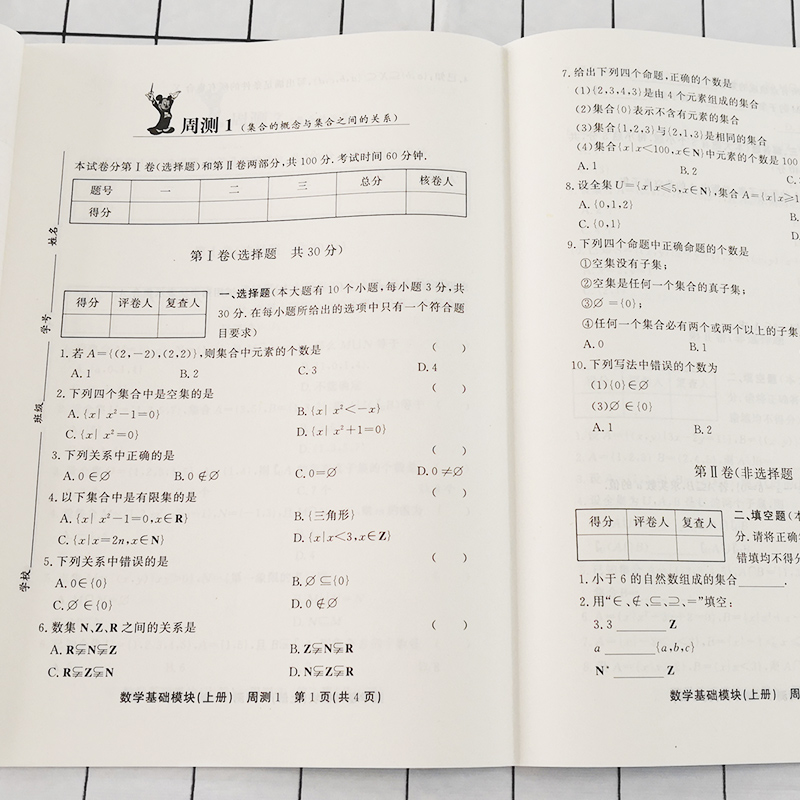 周测 1 (集合的概念与集合之间的关系)
本试卷分第Ⅰ卷(选择题)和第Ⅱ卷两部分,共 100 分.考试时间 60 分钟.
题号 一 二 三 总分 核卷人
得分
姓名
学号
班级
学校
第Ⅰ卷(选择题 共 30 分)
得分 评卷人 复查人
一、选择题(本大题有 10 个小题,每小题 3 分,共
30 分.在每小题所给出的选项中只有一个符合题
目要求)
1.若 A={(2,-2),(2,2)},则集合中元素的个数是 ( )
A.1 B.2 C.3 D.4
2.下列四个集合中是空集的是 ( )
A.{x| x²-1=0} B.{x| x²<-x}
C.{x| x²=0} D.{x| x²+1=0}
3.下列关系中正确的是 ( )
A.0∈∅ B.0∉∅ C.0=∅ D.0≠∅
4.以下集合中是有限集的是 ( )
A.{x| x²-1=0,x∈R} B.{三角形}
C.{x|x=2n,x∈N} D.{x|x<3,x∈Z}
5.下列关系中错误的是 ( )
A.0∈{0} B.∅⊆{0}
C.∅∈{0} D.0∉∅
6.数集 N、Z、R 之间的关系是 ( )
A.R⫋N⫋Z B.Z⫋N⫋R
C.R⫋Z⫋N D.N⫋Z⫋R
数学基础模块(上册) 周测 1 第 1 页(共 4 页)
7.给出下列四个命题,正确的个数是
(1){2,3,4,3}是由 4 个元素组成的集合
(2)集合{0}表示不含有元素的集合
(3)集合{1,2,3}与{2,1,3}是相同的集合
(4)集合{x|x<100,x∈N}中元素的个数是 100
A.1 B.2 C.
8.设全集 U={x|x≤5,x∈N},集合 A={x|x≥1
A.{0,1,2} B.
C.{0,1} D.
9.下列四个命题中正确命题的个数是
①空集没有子集;
②空集是任何一个集合的真子集;
③∅={0};
④任何一个集合必有两个或两个以上的子集
A.0 B.1
10.下列写法中错误的个数为
(1){0}∈∅
(3)∅∈{0}
A.1 B.2
第Ⅱ卷(非选择题
得分 评卷人 复查人
二、填空题(本
分.请将正确
错填均不得分
1.小于 6 的自然数组成的集合______.
2.用“∈、∉、⊆、⊇、=”填空:
3.3 ______ Z
a ______{a,b,c}
N* ______ Z
数学基础模块(上册) 周